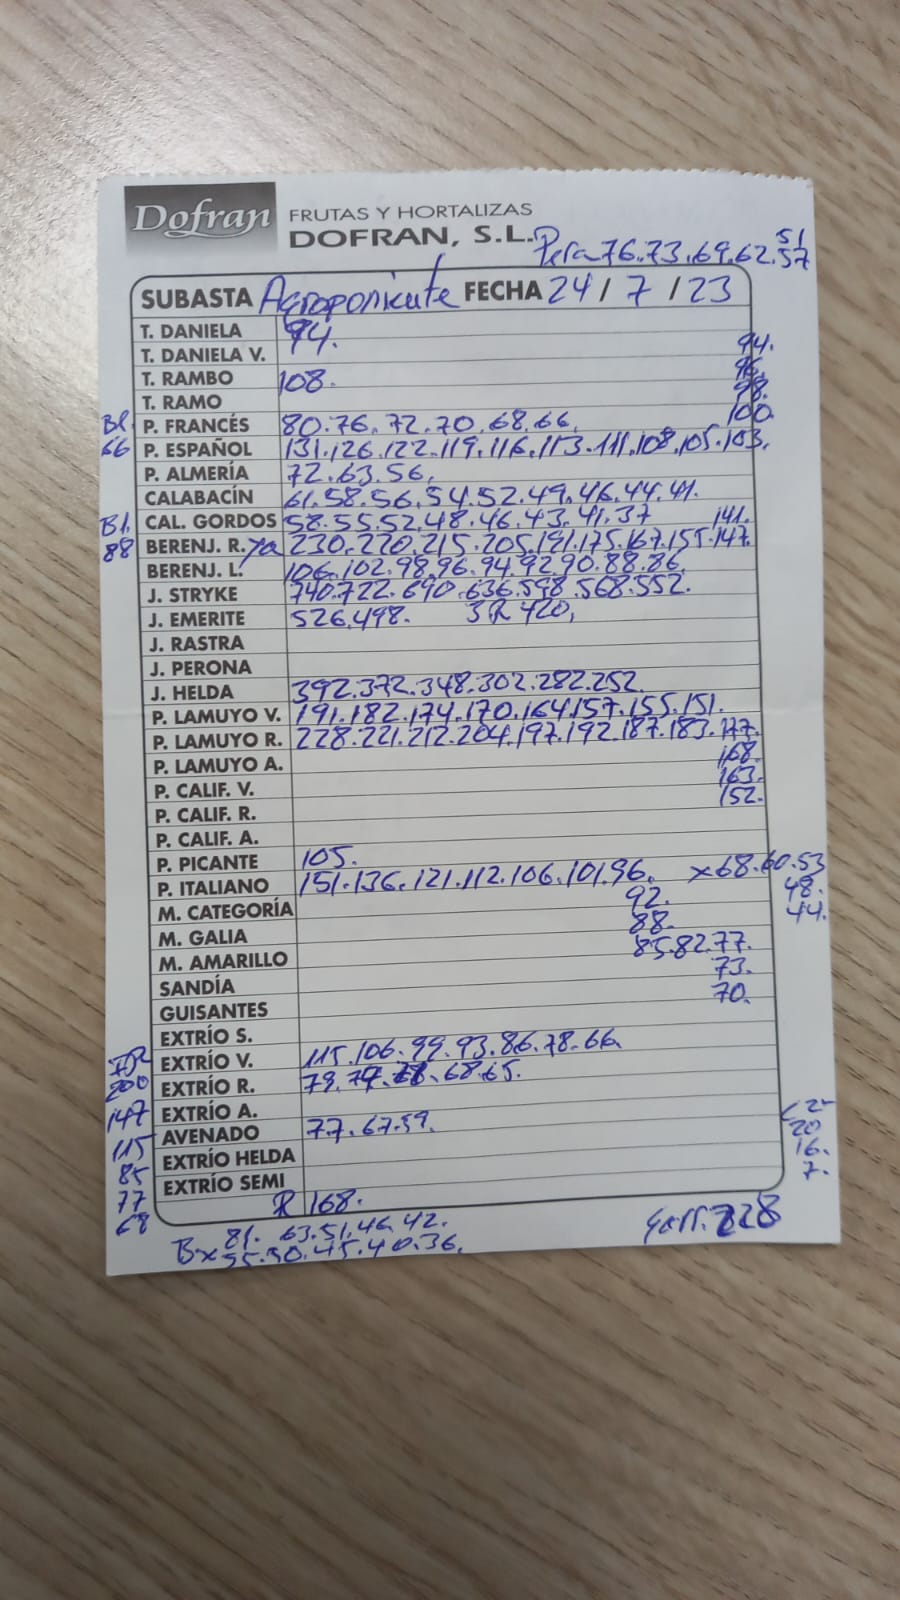 Dofran FRUTAS Y HORTALIZAS
DOFRAN, S.L.
Pera 76.73.69.62.57
51
SUBASTA Agroponiente FECHA 24/7/23
T. DANIELA 94.
T. DANIELA V. 94.
T. RAMBO 108. 96.
T. RAMO 98.
100.
Bl. P. FRANCÉS 80.76.72.70.68.66.
66 P. ESPAÑOL 131.126.122.119.116.113.111.108.105.103.
P. ALMERÍA 72.63.56.
CALABACÍN 61.58.56.54.52.49.46.44.41.
Bl. CAL. GORDOS 58.55.52.48.46.43.41.37 141.
88 BERENJ. R. 230.220.215.205.191.175.167.155.147.
BERENJ. L. 106.102.98.96.94.92.90.88.86.
J. STRYKE 740.722.690.636.598.568.552.
J. EMERITE 526.498. 3R 420,
J. RASTRA
J. PERONA
J. HELDA 392.372.348.302.282.252.
P. LAMUYO V. 191.182.174.170.164.157.155.151.
P. LAMUYO R. 228.221.212.204.197.192.187.183.177.
P. LAMUYO A. 168.
P. CALIF. V. 163.
P. CALIF. R. 152.
P. CALIF. A.
P. PICANTE 105.
P. ITALIANO 151.136.121.112.106.101.96. x68.60.53
48.
44.
M. CATEGORÍA 92.
M. GALIA 88.
M. AMARILLO 85.82.77.
SANDÍA 73.
GUISANTES 70.
EXTRÍO S.
EXTRÍO V. 115.106.99.93.86.78.66.
200 EXTRÍO R. 79. 68.65.
147 EXTRÍO A.
115 AVENADO 77.67.59.
85 EXTRÍO HELDA
77 EXTRÍO SEMI
68 R 168.
20
16.
7.
81. 63.51.46.42.
Bx 55.50.45.40.36.